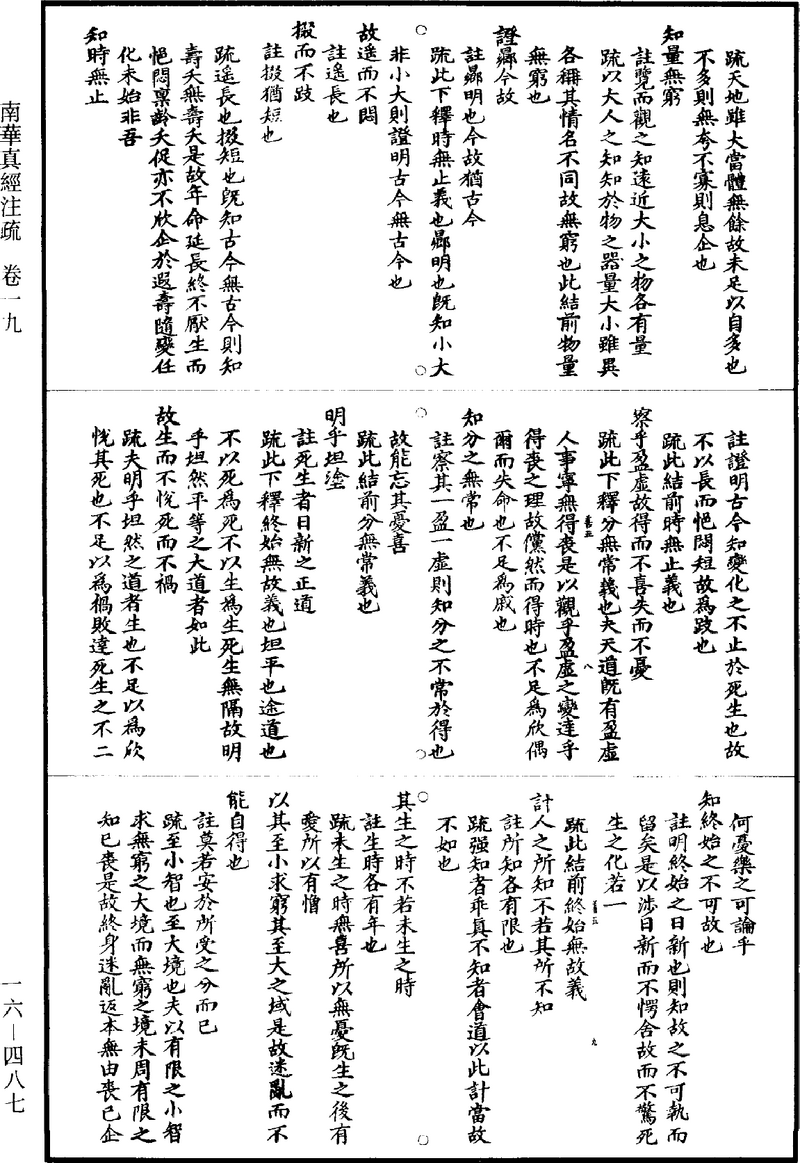 疏天地雖大當體無餘故未足以自多也
不多則無夸不寡則息企也
知量無窮
註覽而觀之知遠近大小之物各有量
疏以大人之知知於物之器量大小雖異
各稱其情名不同故無窮也此結前物量
無窮也
證曏今故
註曏明也今故猶古今
疏此下釋時無止義也曏明也既知小大
非小大則證明古今無古今也
故遥而不悶
註遥長也
掇而不跂
註掇猶短也
疏遥長也掇短也既知古今無古今則知
壽夭無壽夭是故年命延長終不厭生而
悒悶稟齡夭促亦不欣企於遐壽隨變任
化未始非吾
知時無止
註證明古今知變化之不止於死生也故
不以長而悒悶短故為跂也
疏此結前時無止義也
察乎盈虛故得而不喜失而不憂
疏此下釋分無常義也夫天道既有盈虛
人事寧無得喪是以觀乎盈虛之變達乎
得喪之理故儻然而得時也不足為欣偶
爾而失命也不足為戚也
知分之無常也
註察其一盈一虛則知分之不常於得也
故能忘其憂喜
疏此結前分無常義也
明乎坦塗
註死生者日新之正道
疏此下釋終始無故義也坦平也途道也
不以死為死不以生為生死生無隔故明
乎坦然平等之大道者如此
故生而不悅死而不禍
疏夫明乎坦然之道者生也不足以為欣
悅其死也不足以為禍敗達死生之不二
何憂樂之可論乎
知終始之不可故也
註明終始之日新也則知故之不可執而
留矣是以涉日新而不愕舍故而不驚死
生之化若一
疏此結前終始無故義
計人之所知不若其所不知
註所知各有限也
疏強知者乖真不知者會道以此計當故
不如也
其生之時不若未生之時
註生時各有年也
疏未生之時無喜所以無憂既生之後有
愛所以有憎
以其至小求窮其至大之域是故迷亂而不
能自得也
註莫若安於所受之分而已
疏至小智也至大境也夫以有限之小智
求無窮之大境而無窮之境未周有限之
知已喪是故終身迷亂返本無由喪已企
南華真經注疏 卷一九
一六—四八七